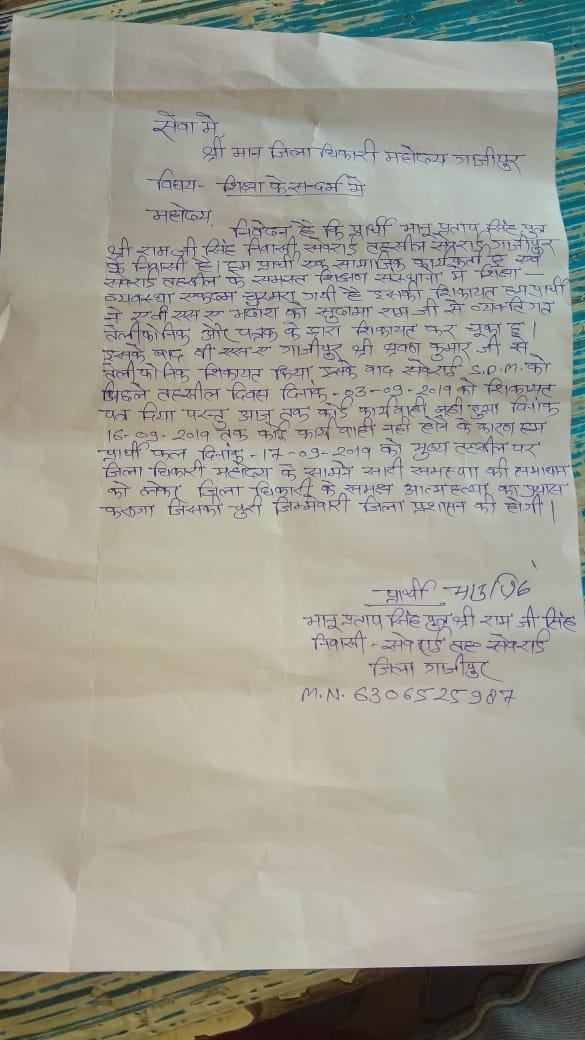 सेवा मे,
श्री मान जिला धिकारी महोदय गाजीपुर
विषय- शिक्षा के सन्दर्भ मे
महोदय,
निवेदन है कि प्रार्थी भानू प्रताप सिंह पुत्र
श्री राम जी सिंह निवासी सेवराई तहसील सेवराई गाजीपुर
के निवासी है। हम प्रार्थी एक सामाजिक कार्यकर्ता है एवं
सेवराई तहसील के समस्त शिक्षण संस्थानो मे शिक्षा -
व्यवस्था एकदम चुरमरा गयी है इसकी शिकायत हम प्रार्थी
ने ए बी एस ए भदौरा को सुदामा राम जी से व्यक्तिगत
टेलीफोनिक और पत्रक के द्वारा शिकायत कर चूका हू।
इसके बाद बी एस ए गाजीपुर श्री श्रवण कुमार जी से
टेलीफोनिक शिकायत किया इसके बाद सेवराई S.D.M. को
पिछले तहसील दिवस दिनांक - 03-09-2019 को शिकायत
पत्र दिया परन्तु आज तक कोई कार्यवाही नही हुआ दिनांक
16-09-2019 तक कोई कार्यवाही नही होने के कारण हम
प्रार्थी कल दिनांक - 17-09-2019 को मुख्य तहसील पर
जिला धिकारी महोदय के सामने सारी समस्या की समाधान
को लेकर जिला धिकारी के समक्ष आत्महत्या का प्रयास
करूगा जिसकी पुरी जिम्मेवारी जिला प्रशासन की होगी।
प्रार्थी
भानू प्रताप सिंह पुत्र श्री राम जी सिंह
निवासी - सेवराई तह० सेवराई
जिला गाजीपुर
M.N. 6306525987